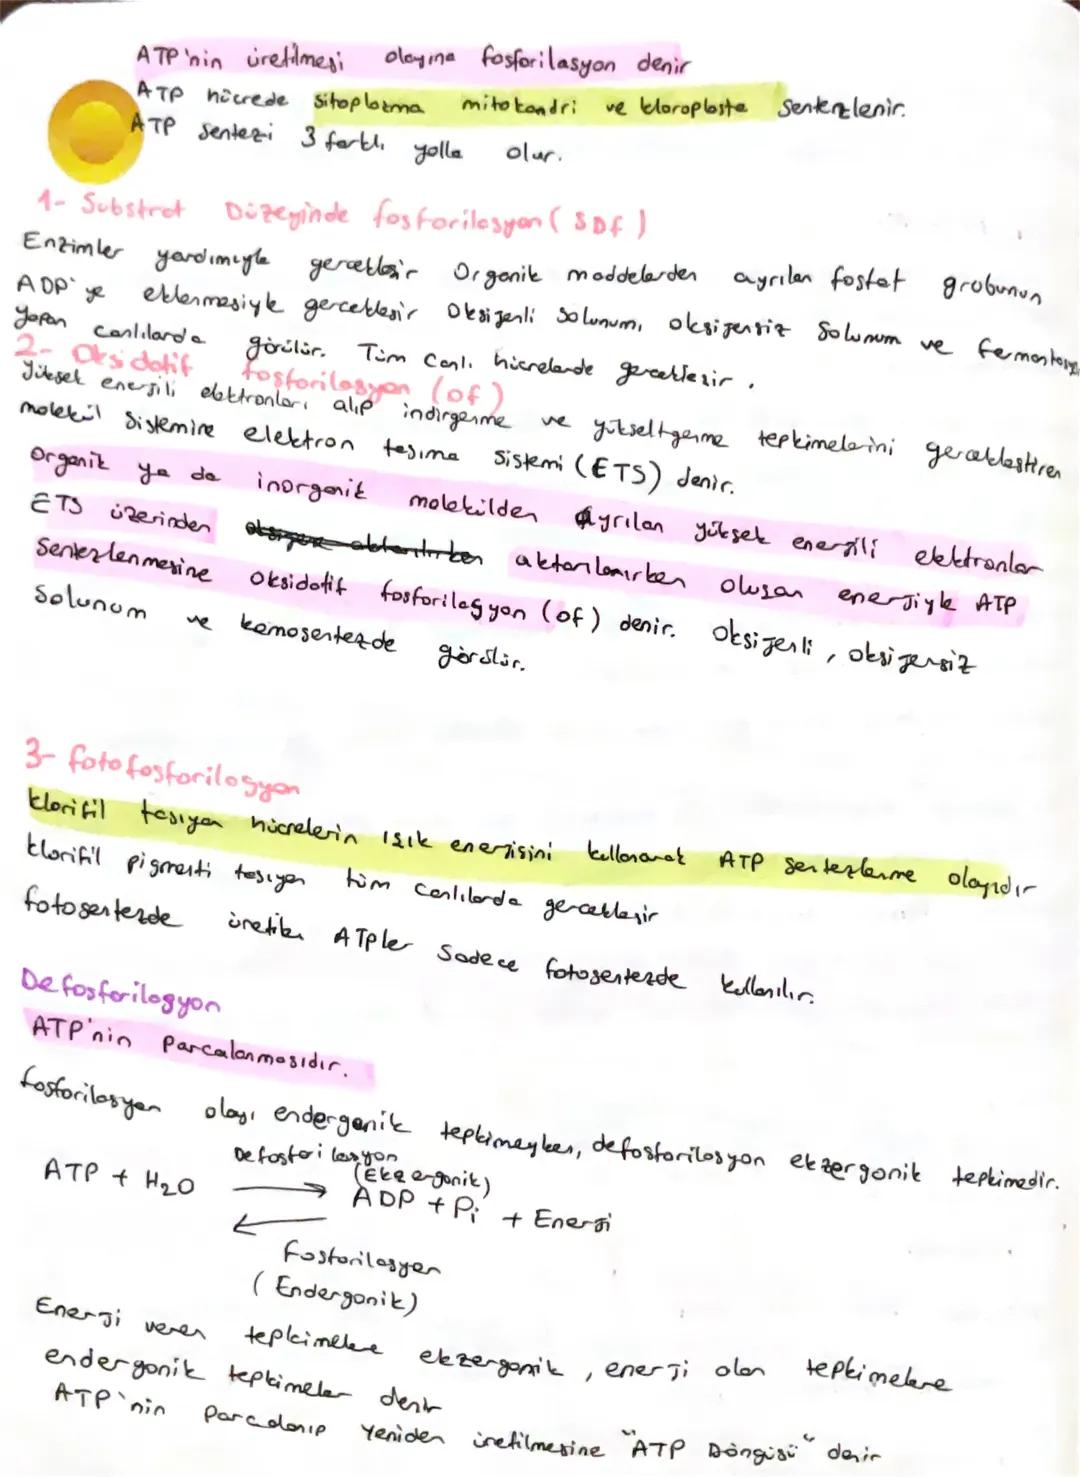 ATP'nin üretilmesi olayına fosforilasyon denir
ATP hücrede sitoplazma mitokondri ve kloroplasta sentezlenir.
ATP sentezi 3 farklı yolla olur.
1- Substrat Düzeyinde fosforilasyon (SDf)
Enzimler yardımıyla gerçekleşir Organik maddelerden ayrılan fosfat grubunun
ADP'ye eklenmesiyle gerçekleşir Oksijenli Solunum, oksijensiz Solunum ve fermantasyon
yapan canlılarda görülür. Tüm canlı hücrelerde gerçekleşir.
2- Oksidatif fosforilasyon (of)
Yüksek enerjili elektronları alıp indirgenme ve yükseltgenme tepkimelerini gerçekleştiren
molekül Sistemine elektron taşıma Sistemi (ETS) denir.
Organik ya da inorganik molekülden ayrılan yüksek enerjili elektronlar
ETS üzerinden aktarılanırken oluşan enerjiyle ATP
Sentezlenmesine oksidatif fosforilasyon (of) denir. Oksijenli, oksijensiz
Solunum ve kemosentezde görülür.
3- fotofosforilasyon
klorifil taşıyan hücrelerin ışık enerjisini kullanarak ATP sentezlenme olayıdır
klorifil pigmenti taşıyan tüm canlılarda gerçekleşir
fotosentezde üretilen ATPler Sadece fotosentezde kullanılır.
Defosforilasyon
ATP'nin Parçalanmasıdır.
fosforilasyon olayı endergonik tepkimeyken, defosforilasyon ekzergonik tepkimedir.
Defosforilasyon
(Ekzergonik)
ATP + H2O → ADP + Pi + Enerji
←
fosforilasyon
(Endergonik)
Enerji veren tepkimelere ekzergonik, enerji alan tepkimelere
endergonik tepkimeler denir
ATP'nin Parçalanıp yeniden üretilmesine "ATP Döngüsü" denir